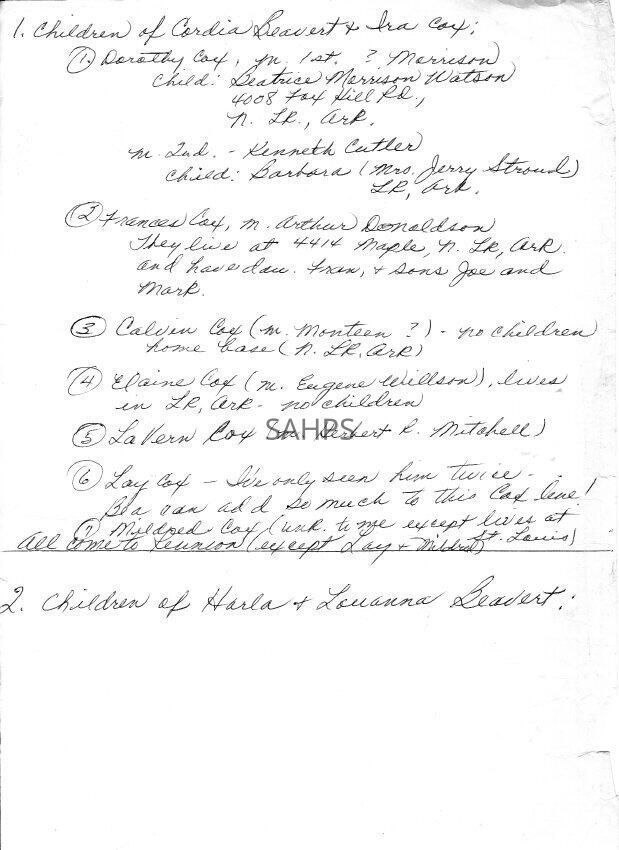 1. Children of Cordia Beavert & Ira Cox:
① Dorothy Cox, m. 1st. ? Morrison
Child: Beatrice Morrison Watson
4008 Fox Hill Rd,
N. LR., Ark.
m. 2nd. - Kenneth Cutler
Child: Barbara (Mrs. Jerry Stroud)
LR, Ark.
② Frances Cox, m. Arthur Donaldson
They live at 4414 Maple, N. LR, Ark.
and have dau. Fran, & sons Joe and
Mark.
③ Calvin Cox (m. Monteen ?) - no children
home base (N. LR, Ark)
④ Elaine Cox (m. Eugene Willson), lives
in LR, Ark - no children
SAHPS
⑤ LaVern Cox m. Herbert R. Mitchell)
⑥ Loy Cox - I've only seen him twice -
Bea can add so much to this Cox line!
⑦ Mildred Cox (unk. to me except lives at
St. Louis)
All come to Reunion (except Loy & Mildred)
2. Children of Harla & Louanna Beavert: